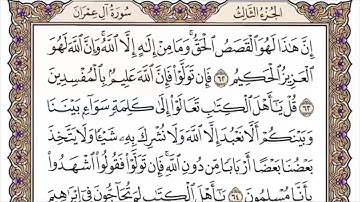 الجزء الثالث سورة آل عمران
إِنَّ هَٰذَا لَهُوَ ٱلْقَصَصُ ٱلْحَقُّ ۚ وَمَا مِنْ إِلَٰهٍ إِلَّا ٱللَّهُ ۚ وَإِنَّ ٱللَّهَ لَهُوَ
ٱلْعَزِيزُ ٱلْحَكِيمُ ٦٢ فَإِن تَوَلَّوْا۟ فَإِنَّ ٱللَّهَ عَلِيمٌۢ بِٱلْمُفْسِدِينَ
٦٣ قُلْ يَٰٓأَهْلَ ٱلْكِتَٰبِ تَعَالَوْا۟ إِلَىٰ كَلِمَةٍ سَوَآءٍۭ بَيْنَنَا
وَبَيْنَكُمْ أَلَّا نَعْبُدَ إِلَّا ٱللَّهَ وَلَا نُشْرِكَ بِهِۦ شَيْـًٔا وَلَا يَتَّخِذَ
بَعْضُنَا بَعْضًا أَرْبَابًا مِّن دُونِ ٱللَّهِ ۚ فَإِن تَوَلَّوْا۟ فَقُولُوا۟ ٱشْهَدُوا۟
بِأَنَّا مُسْلِمُونَ ٦٤ يَٰٓأَهْلَ ٱلْكِتَٰبِ لِمَ تُحَآجُّونَ فِىٓ إِبْرَٰهِيمَ